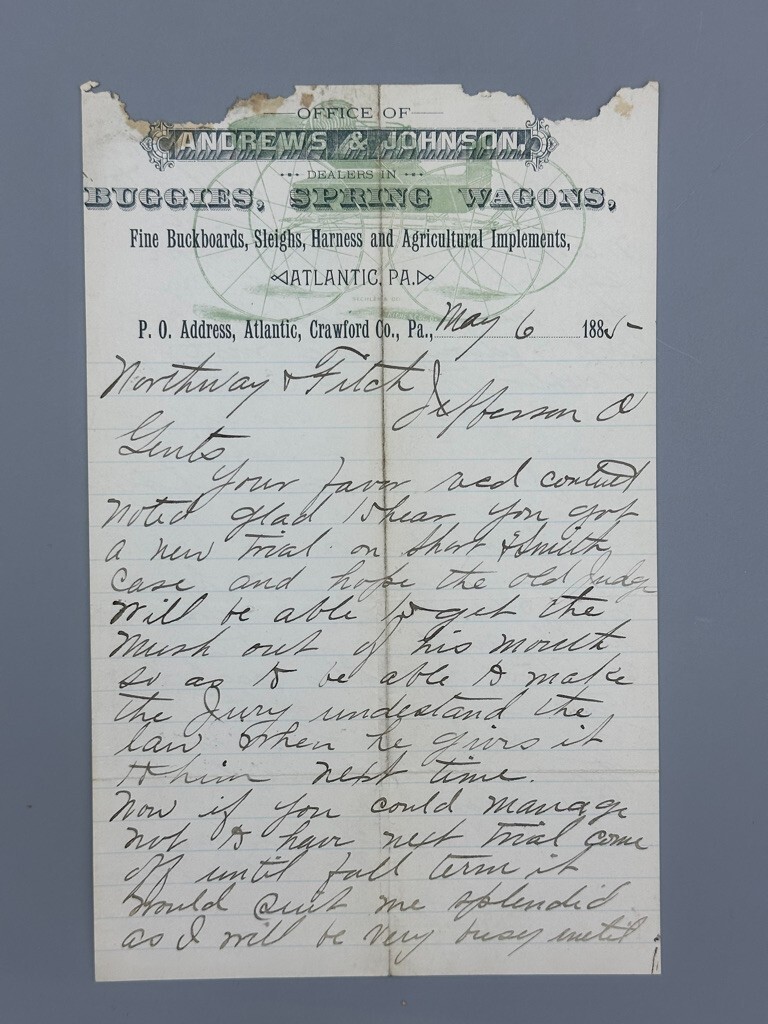 OFFICE OF
ANDREWS & JOHNSON,
DEALERS IN
BUGGIES, SPRING WAGONS,
Fine Buckboards, Sleighs, Harness and Agricultural Implements,
ATLANTIC, PA.
P. O. Address, Atlantic, Crawford Co., Pa., May 6 1885
Northway & Fitch
Jefferson O
Gents
Your favor recd
noted glad to hear you got
a new trial on Short & Smith
case and hope the old Judge
will be able to get the
mush out of his mouth
so as to be able to make
the Jury undestand the
law when he givs it
to him next time.
Now if you could manage
not to have next trial come
off until fall term it
would suit me splendid
as I will be very busy until